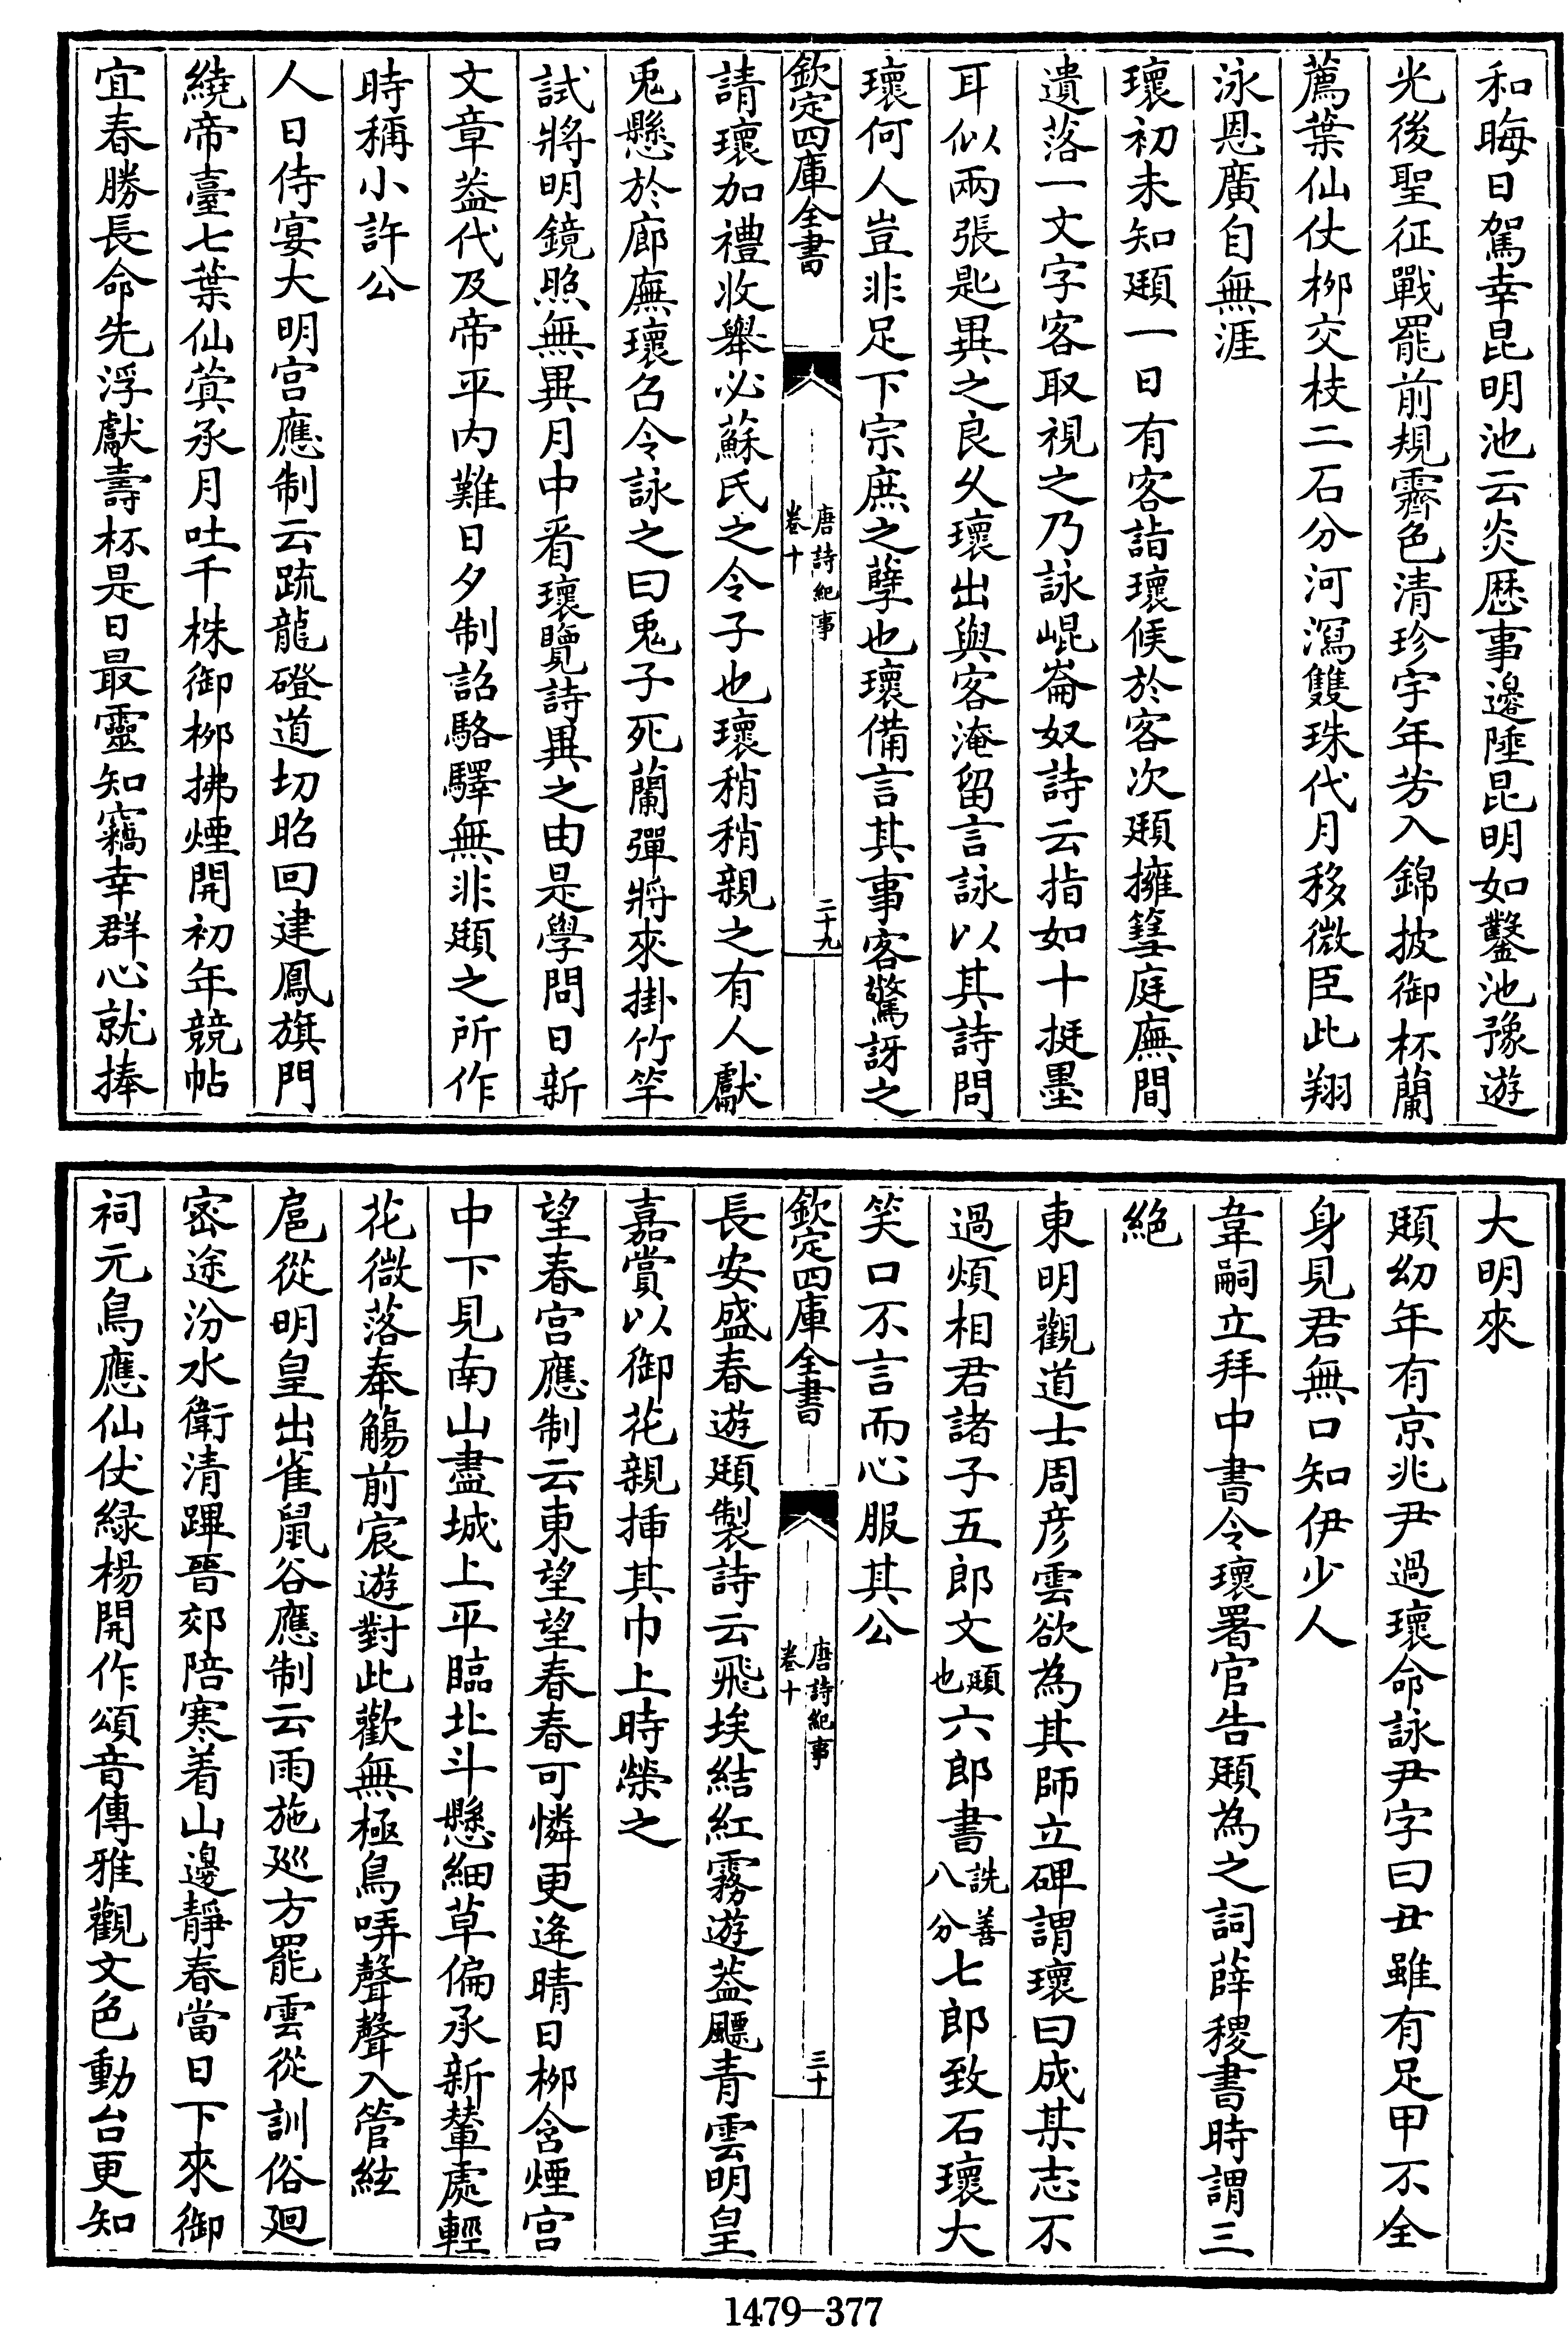 和晦日駕幸昆明池云炎厯事邊陲昆明如鑿池豫遊
光後聖征戰罷前規霽色清珍宇年芳入錦披御杯蘭
薦葉仙仗栁交枝二石分河瀉雙珠代月移微臣此翔
泳恩廣自無涯
瓌初未知頲一日有客詣瓌候於客次頲擁篲庭廡間
遺落一文字客取視之乃詠崐崙奴詩云指如十挺墨
耳似兩張匙異之良乆瓌出與客淹留言詠以其詩問
瓌何人豈非足下宗庶之孽也瓌備言其事客驚訝之
欽定四庫全書
唐詩紀事
卷十
二十九
請瓌加禮收舉必蘇氏之令子也瓌稍稍親之有人獻
兎懸於廊廡瓌召令詠之曰兎子死蘭彈將來掛竹竿
試將明鏡照無異月中看瓌覽詩異之由是學問日新
文章葢代及帝平内難日夕制詔駱驛無非頲之所作
時稱小許公
人日侍宴大明宫應制云䟽龍磴道切昭回建鳳旗門
繞帝臺七葉仙蓂承月吐千株御栁拂煙開初年競帖
宜春勝長命先浮獻壽杯是日最靈知竊幸群心就捧
大明來
頲幼年有京兆尹過瓌命詠尹字曰丑雖有足甲不全
身見君無口知伊少人
韋嗣立拜中書令瓌署官告頲為之詞薛稷書時謂三
絶
東明觀道士周彦雲欲為其師立碑謂瓌曰成某志不
過煩相君諸子五郎文頲也六郎書詵善八分七郎致石瓌大
笑口不言而心服其公
欽定四庫全書
唐詩紀事
卷十
三十
長安盛春遊頲製詩云飛埃結紅霧遊葢飄青雲明皇
嘉賞以御花親挿其巾上時榮之
望春宫應制云東望望春春可憐更逢晴日栁含煙宫
中下見南山盡城上平臨北斗懸細草偏承新輦處輕
花微落奉觴前宸遊對此歡無極鳥哢聲聲入管絃
扈從明皇出雀鼠谷應制云雨施廵方罷雲從訓俗廻
密途汾水衛清蹕晉郊陪寒着山邊靜春當日下來御
祠元鳥應仙仗緑楊開作頌音傳雅觀文色動台更知
1479-377